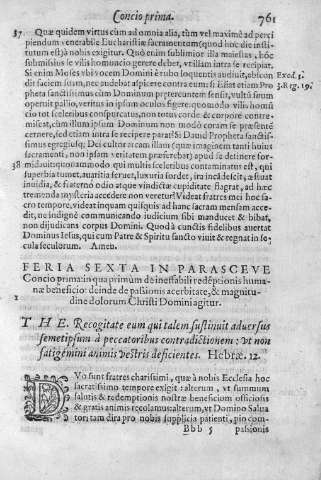 Concio prima. 761
37 Quæ quidem virtus cùm ad omnia alia, tùm vel maximè ad perci
piendum venerabile Eucharistiæ sacramentum (quod hoc die insti-
tutum est) à nobis exigitur. Quò enim sublimior illa maiestas, hôc
submissiùs se vilis homuncio gerere debet, vt illam intra se recipiat.
Si enim Moses vbi vocem Domini è rubo loquentis audiuit, abscon Exod. 3.
dit faciem suam, nec audebat aspicere contra eum: si Elias etiam Pro 3. Reg. 19.
pheta sanctissimus cùm Dominum prætereuntem sensit, vultũ suum
operuit pallio, veritus in ipsum oculos figere: quomodo vilis homũ
cio tot sceleribus conspurcatus, non totus corde & corpore contre-
miscat, cùm illum ipsum Dominum non modò coram se præsentẽ
cernere, sed etiam intra se recipere parat? Si Dauid Propheta sanctis-
simus
sacramenti, non ipsam veritatem præferebat) apud se detinere for-
38 midauit: quomodo qui multis sceleribus contaminatus est, qui
superbia tumet, auaritia feruet, luxuria sordet, ira incãdescit, æstuat
inuidia, & fraterno odio atque vindictæ cupiditate flagrat, ad hæc
tremenda mysteria accedere non veretur? Videat fratres mei hoc sa-
cro tempore, videat inquam quisquis ad hanc sacram mensam acce-
dit, ne indignè communicando iudicium sibi manducet & bibat,
non dijudicans corpus Domini. Quod à cunctis fidelibus auertat
Dominus Iesus, qui cum Patre & Spiritu sancto viuit & regnat in sę
cula seculorum. Amen.
FERIA SEXTA IN PARASCEVE
Concio prima: in qua primùm de ineffabili redẽptionis huma
næ beneficio: deinde de passionis acerbitate, & magnitu-
dine dolorum Christi Domini agitur.
1
T H E. Recogitate eum qui talem sustinuit aduersus
semetipsum à peccatoribus contradictionem: vt non
fatigemini animis vestris deficientes. Hebræ. 12.
DVo sunt fratres charissimi, quæ à nobis Ecclesia hoc
sacratissimo tempore exigit: alterum, vt summum
salutis & redemptionis nostræ beneficium officiosis
& gratis animis recolamus: alterum, vt Domino Salua
tori tam dira pro nobis supplicia patienti, pia com-
Bbb 5 passionis